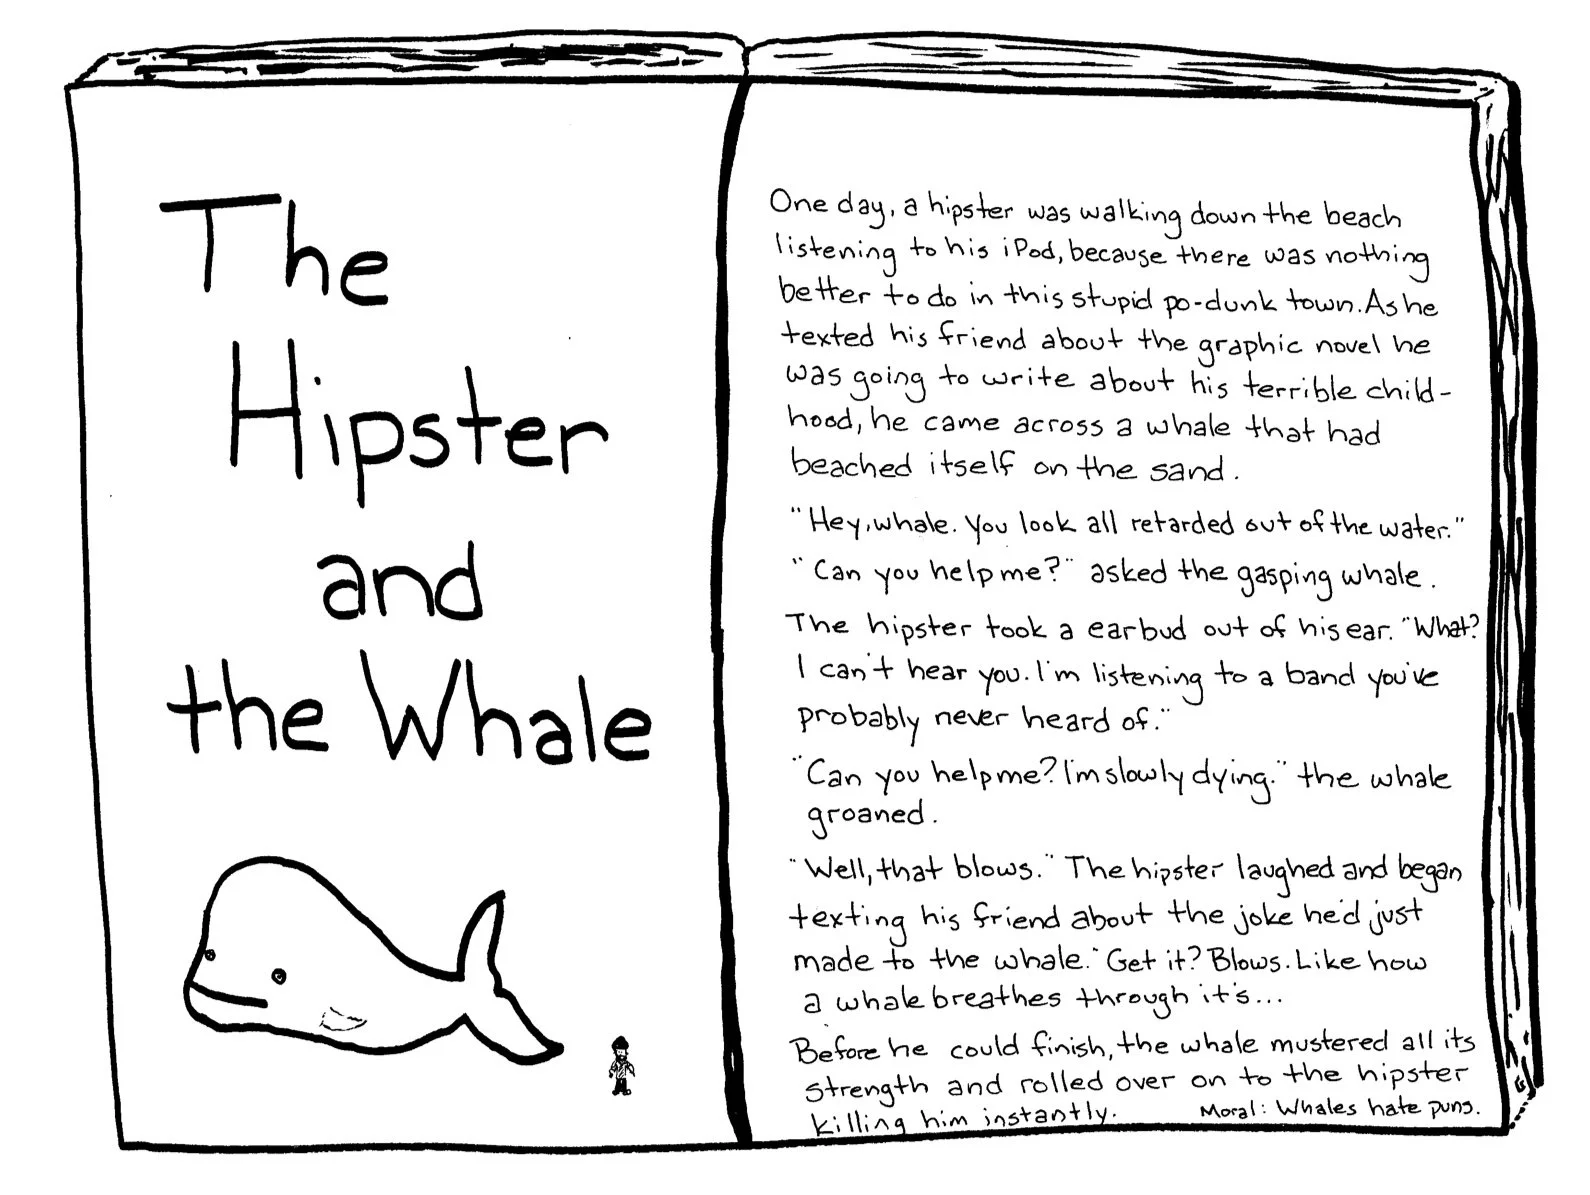 The
Hipster
and
the Whale
One day, a hipster was walking down the beach
listening to his iPod, because there was nothing
better to do in this stupid po-dunk town. As he
texted his friend about the graphic novel he
was going to write about his terrible child-
hood, he came across a whale that had
beached itself on the sand.
"Hey, whale. You look all retarded out of the water."
"Can you help me?" asked the gasping whale.
The hipster took a earbud out of his ear. "What?
I can't hear you. I'm listening to a band you've
probably never heard of."
"Can you help me? I'm slowly dying." the whale
groaned.
"Well, that blows." The hipster laughed and began
texting his friend about the joke he'd just
made to the whale. "Get it? Blows. Like how
a whale breathes through it's...
Before he could finish, the whale mustered all its
strength and rolled over on to the hipster
killing him instantly. Moral: Whales hate puns.